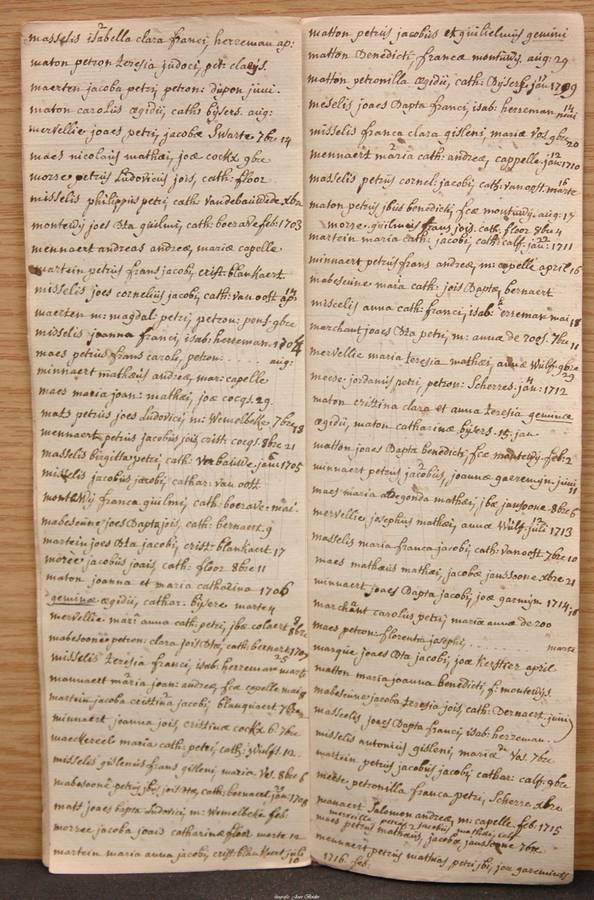 masselis isabella clara franci, herreman ap:
maton petron teresia judoci, pet: claeijs.
maerten jacoba petri, petron: dupon juni.
maton carolus ægidii, cath: bijsers. aug:
mervellie joaes petri, jacobæ Swarte 7bre 14
maes nicolaus mathæi, joæ cockx 9bre
morre petrus Ludovicus jois, cath: floor
misselis philippus petri, cath vandebauidede xbre
montewij joes Bta guilmi, cath: boerave feb: 1703
mennaert andreas andreæ, mariæ capelle
martein petrus frans jacobi, crist: blankaert
misselis joes cornelius jacobi, cath: van oost 14 ap:
maerten m: magdal: petri, petron: pons 9bre
misselis joanna franci, isab: herreman 1704
maes petrus frans caroli, petron: aug:
minnaert mathæus andreæ, mar: capelle
maes maria joan: mathæi, joæ cocqs. 29.
mats petrus joes Ludovici, m: Wemelbeke 7bre 18
mennaert petrus jacobus jois crist: cocqs. 8bre 21
masselis birgitta petri, cath: verbauwe jan: 1705
misselis jacobus jacobi, cathar: van oost
montewij franca guilmi, cath: boerave: mai.
mabesoone joes Bapta jois, cath: bernaert. 9
martein joes Bta jacobi, crist: blankaert 17
morre jacobus joais cath: floor 8bre 11
maton joanna et maria catharina 1706
geminæ ægidii, cathar: bijsere marte 4
mervellie: mari anna cath: petri, jbæ colaert 8bre
mabesoone petron: clara jois Bta, cath: bernart 1707
misselis teresia franci, isab: herreman 25 mart
mannaert maria joan: andreæ, fcæ capelle maij
martein jacoba cristina jacobi, blanquaert 7bre
minnaert joanna jois, cristinæ cockx 6 7bre
maeckereel maria cath: petri, cath: Wulfs. 12.
misselis gislenus frans gisleni, mariæ Vos. 8bre 6
mabesoone petrus jbs jois Bta, cath: bernaert jan: 1708
matt joaes bapta Ludovici, m: Wemelbeke feb
morree jacoba joais catharinæ floor marte 12
martein maria anna jacobi, crist: blankaert julii 10
matton petrus jacobus et guilielmus gemini
matton Benedicti, francæ montewij. aug: 29
matton petronilla ægidii, cath: Bijsers. jan 1709
meselis joaes Bapta franci, isab: herreman 14 juni
misselis franca clara gisleni, mariæ Vos 9bre 20
mennaert maria cath: andreæ, cappelle. jan: 12 1710
masselis petrus corneli: jacobi, cath: van oost. 16 marte
maton petrus jbus benedicti, fcæ montewij. aug: 17
morre. guilmus frans jois. cath: floor 9bre 4
martein maria cath: jacobi, cath: calf: jan: 1711
minnaert petrus frans andreæ, m: capelle april 16
mabesoune maria cath: jois Baptæ, bernaert
misselis anna cath: franci, isab: herreman mai 18
marchant joaes Bta petri, m: annæ de 200s. 7bre 11
mervellie maria teresia mathæi, annæ Wulf: 9bre 29
meese jordanus petri, petron: Scherres. jan: 1712
maton cristina clara et anna teresia geminæ
ægidii, maton catharinæ bijsers. 15 jan
matton joaes Bapta benedicti, fcæ montewij feb: 2
minnaert petrus jacobus, joannæ gaeremijn juni 11
maes maria aldegonda mathæi, jbæ janssone 8bre 6
mervellie josephus mathæi, annæ Wulf. julii 1713
masselis maria franca jacobi, cath: van oost: 7bre 10
maes mathæus mathæi, jacobæ janssoone xbre 21
minnaert joaes Bapta jacobi, joæ garmijn 1714. 18
marchant carolus petri, mariæ annæ de 200
maes petron: florentia josephi, . . . . marte
marque joaes Bta jacobi, joæ Kerstier april
matton maria joanna benedicti, f: montewijs
mabesoune jacoba teresia jois, cath: Bernaert. juni
masselis joaes Bapta franci, isab: herreman.
misselis antonius gisleni, mariæ du Vos. 7bre
martein petrus jacobus jacobi, cathar: calf: 9bre
meese petronilla franca petri, Scherre xbre
manaert Salomon andreæ, m: capelle. feb. 1715
maes petrus mathæus, jacobæ janssoone 7bre
mennaert petrus mathias petri jbi, joæ garemijnds
1716 feb: